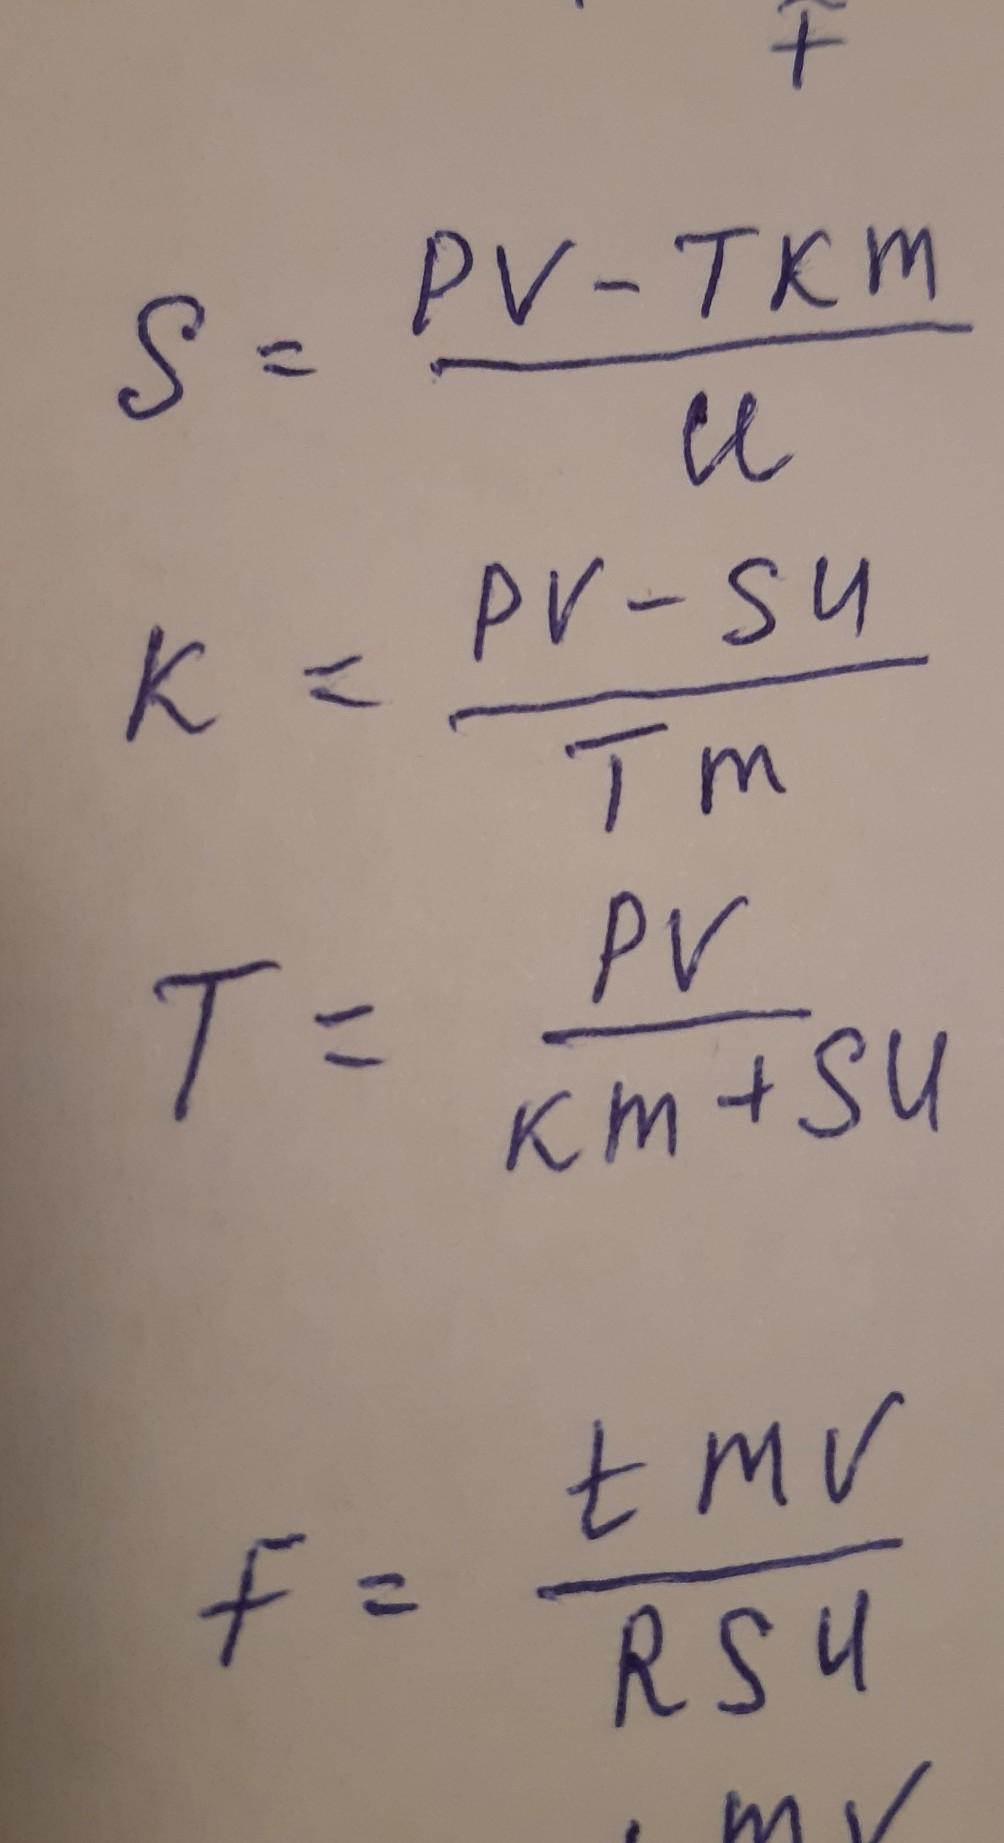 F
S = PV - TKm / U
K = PV - SU / Tm
T = PV / Km + SU
F = t m V / R S U
m V